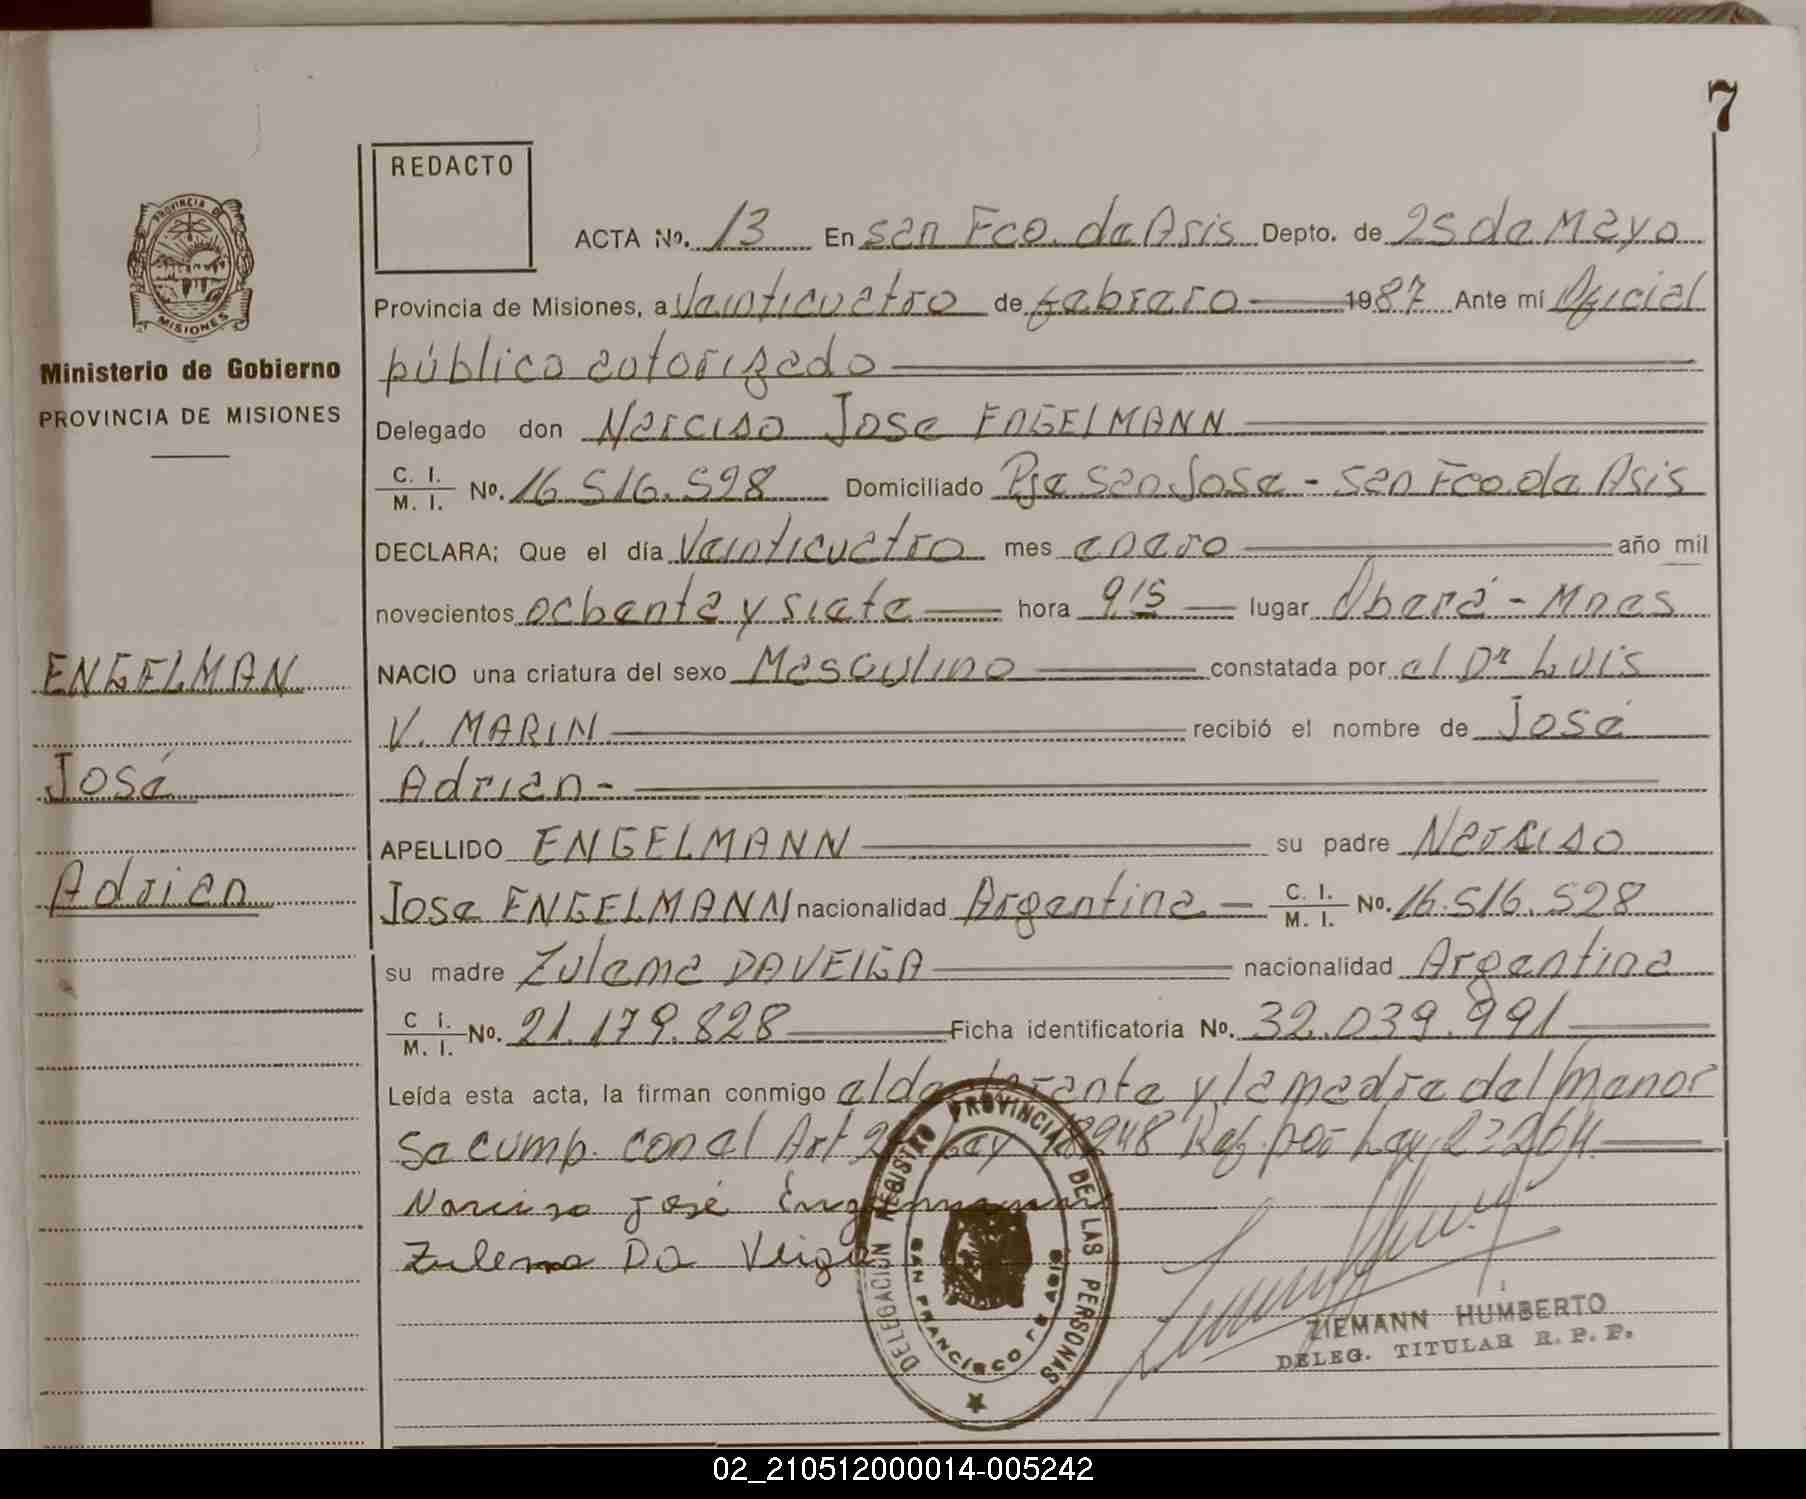 7
REDACTO
ACTA No. 13 En San Fco. de Asis Depto. de 25 de Mayo
Provincia de Misiones, a Veinticuatro de febrero 1987 Ante mí Oficial
público autorizado
Delegado don Narciso Jose ENGELMANN
C. I. / M. I. No. 16.516.528 Domiciliado Pje San Jose - San Fco. de Asis
DECLARA; Que el día Veinticuatro mes enero año mil
novecientos ochenta y siete hora 9 15 lugar Oberá - Mnes
NACIO una criatura del sexo Masculino constatada por el Dr Luis
V. MARIN recibió el nombre de José
Adrian-
APELLIDO ENGELMANN su padre Narciso
Jose ENGELMANN nacionalidad Argentina - C. I. / M. I. No. 16.516.528
su madre Zulema DA VEIGA nacionalidad Argentina
C I. / M. I. No. 21.179.828 Ficha identificatoria No. 32.039.991
Leída esta acta, la firman conmigo el declarante y la madre del menor
Se cump. con el Art Ley 18248 Ref. por Ley 23264.
Narciso José Engelmann
Zulema Da Veiga
PROVINCIA DE MISIONES
Ministerio de Gobierno
PROVINCIA DE MISIONES
ENGELMAN
José
Adrian
DELEGACION REGISTRO PROVINCIAL DE LAS PERSONAS
SAN FRANCISCO DE ASIS
ZIEMANN HUMBERTO
DELEG. TITULAR R. P. P.
02_210512000014-005242